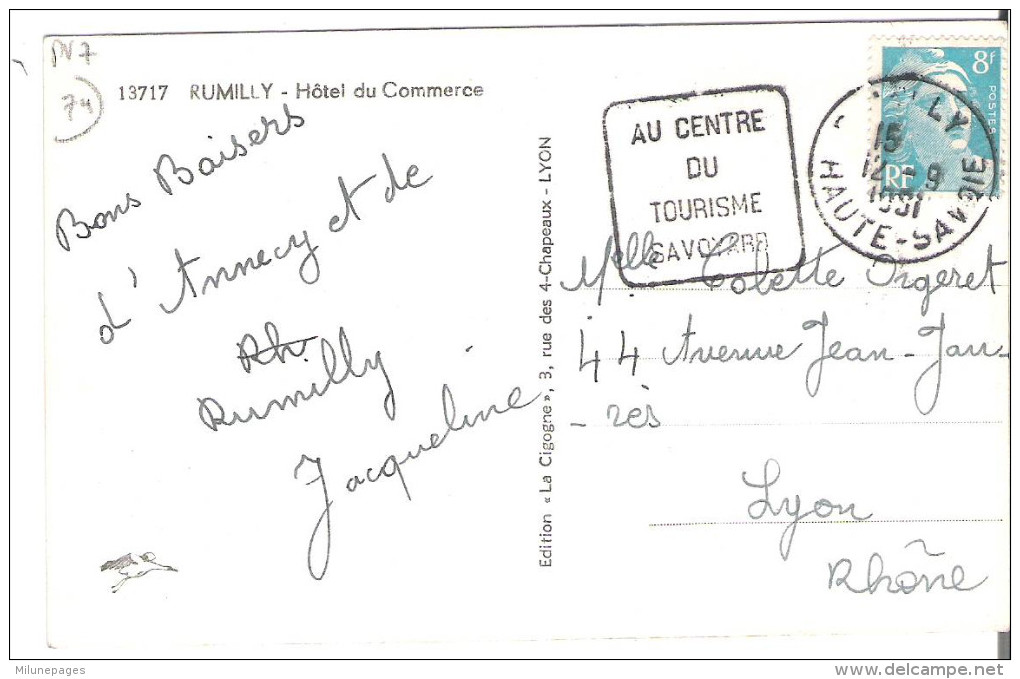 PV7
74
13717 RUMILLY - Hôtel du Commerce
Bons Baisers
d'Annecy et de
Rh
Rumilly
Jacqueline
Edition « La Cigogne », 3, rue des 4-Chapeaux - LYON
AU CENTRE
DU
TOURISME
SAVOYARD
8f
POSTES
RF
LLY
15
12-9
1951
HAUTE-SAVOIE
Melle Colette Orgeret
44 Avenue Jean-Jau-
-rès
Lyon
Rhône
Milunepages
www.delcampe.net